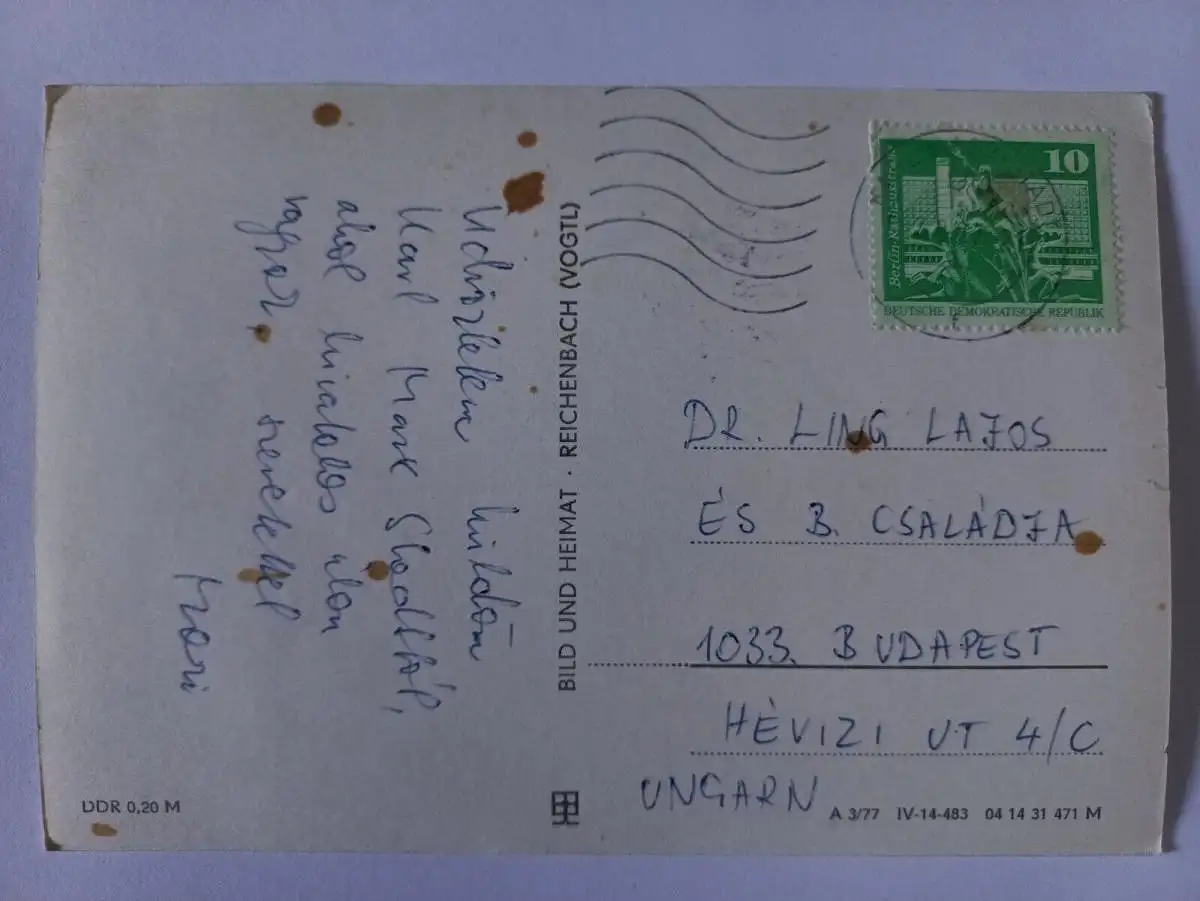 Üdvözletem küldöm
Karl Marx Stadtból,
ahol hivatalos úton
vagyok. szeretettel
Mari
BILD UND HEIMAT · REICHENBACH (VOGTL)
10
Berlin-Rathausstraße
DEUTSCHE DEMOKRATISCHE REPUBLIK
DR. LING LAJOS
ÉS B. CSALÁDJA
1033. BUDAPEST
HÉVIZI UT 4/C
UNGARN
DDR 0,20 M
A 3/77 IV-14-483 04 14 31 471 M